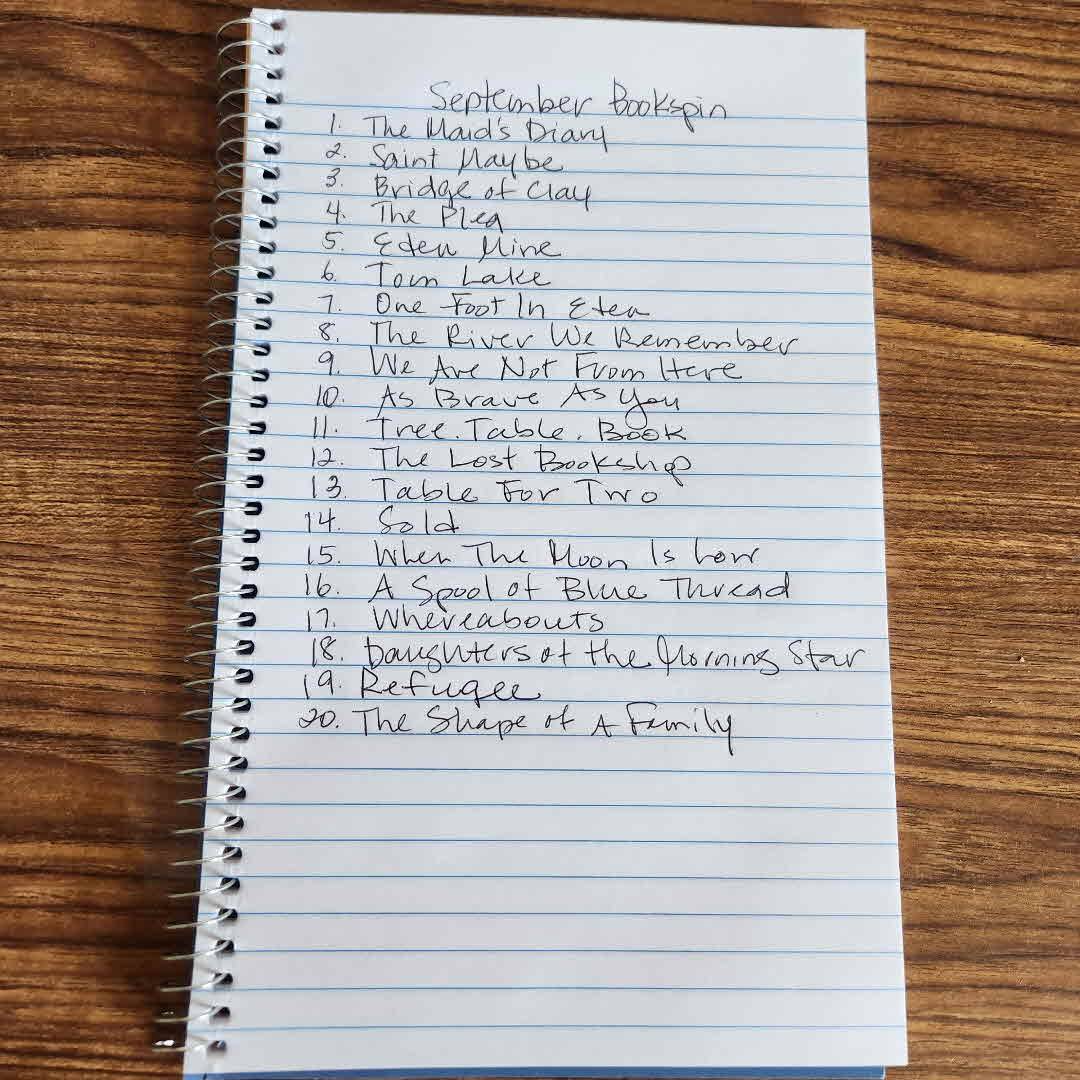 September Bookspin
1. The Maid's Diary
2. Saint Maybe
3. Bridge of Clay
4. The Plea
5. Eden Mine
6. Tom Lake
7. One Foot In Eden
8. The River We Remember
9. We Are Not From Here
10. As Brave As You
11. Tree. Table. Book
12. The Lost Bookshop
13. Table For Two
14. Sold
15. When The Moon Is Low
16. A Spool of Blue Thread
17. Whereabouts
18. Daughters of the Morning Star
19. Refugee
20. The Shape of A Family